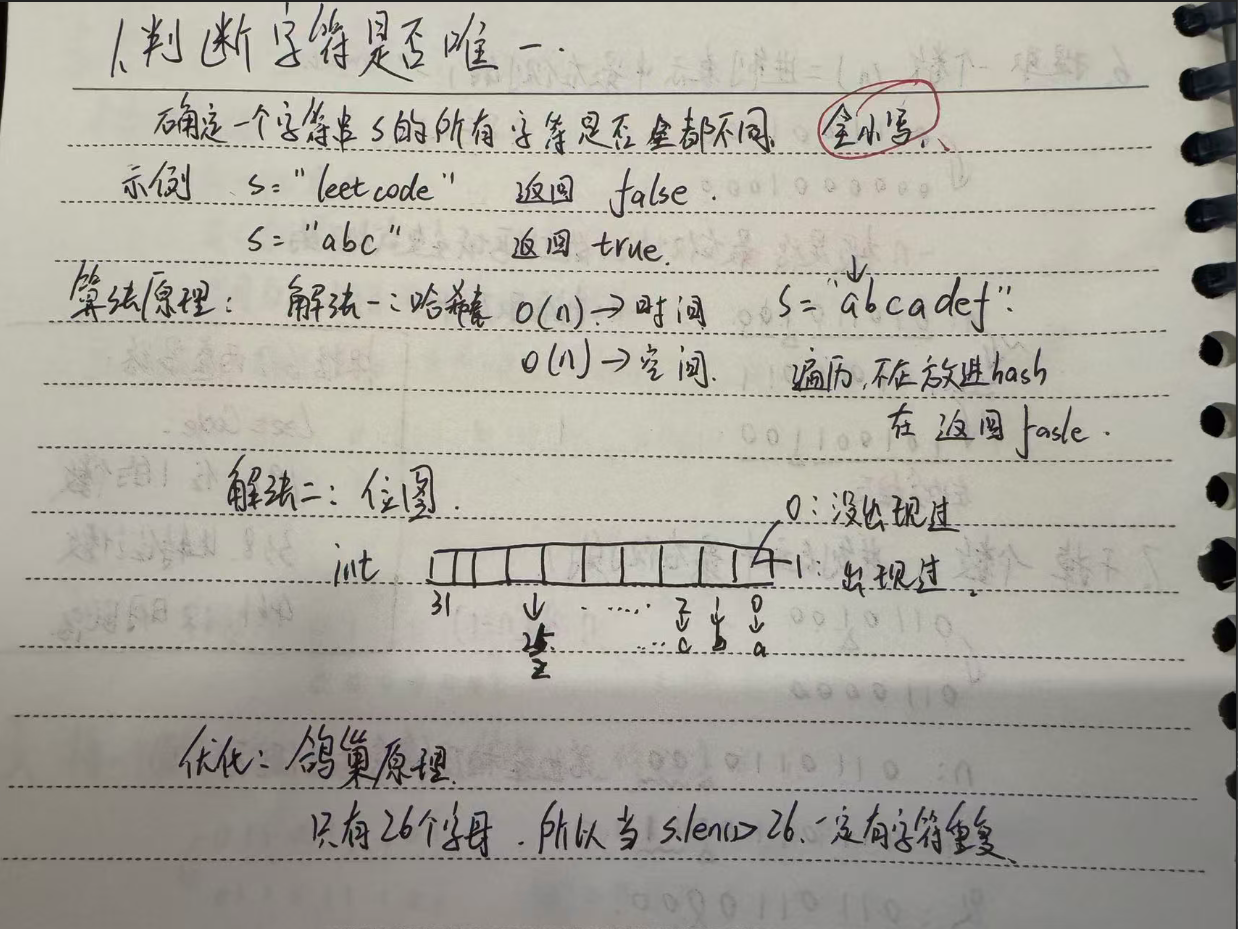 1.判断字符是否唯一.
确定一个字符串s的所有字符是否全都不同. 全小写
示例 s="leetcode" 返回 false.
s="abc" 返回 true.
算法原理: 解法一:哈希表 O(n)→时间 s="abcadef".
O(n)→空间. 遍历,不在放进hash
在 返回 fasle.
解法二: 位图.
0:没出现过
int 1:出现过.
31 ↓ ...... 2 1 0
25 ... c b a
z
优化: 鸽巢原理
只有26个字母.所以当 s.len()>26.一定有字符重复